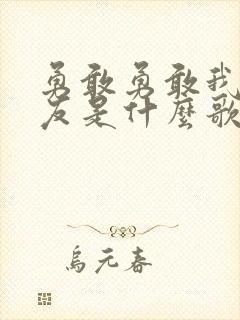 勇敢勇敢我
友是什麼歌
烏元春